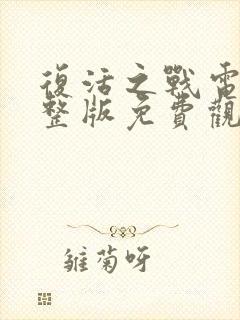 復活之戰電
整版免費觀
雛菊呀